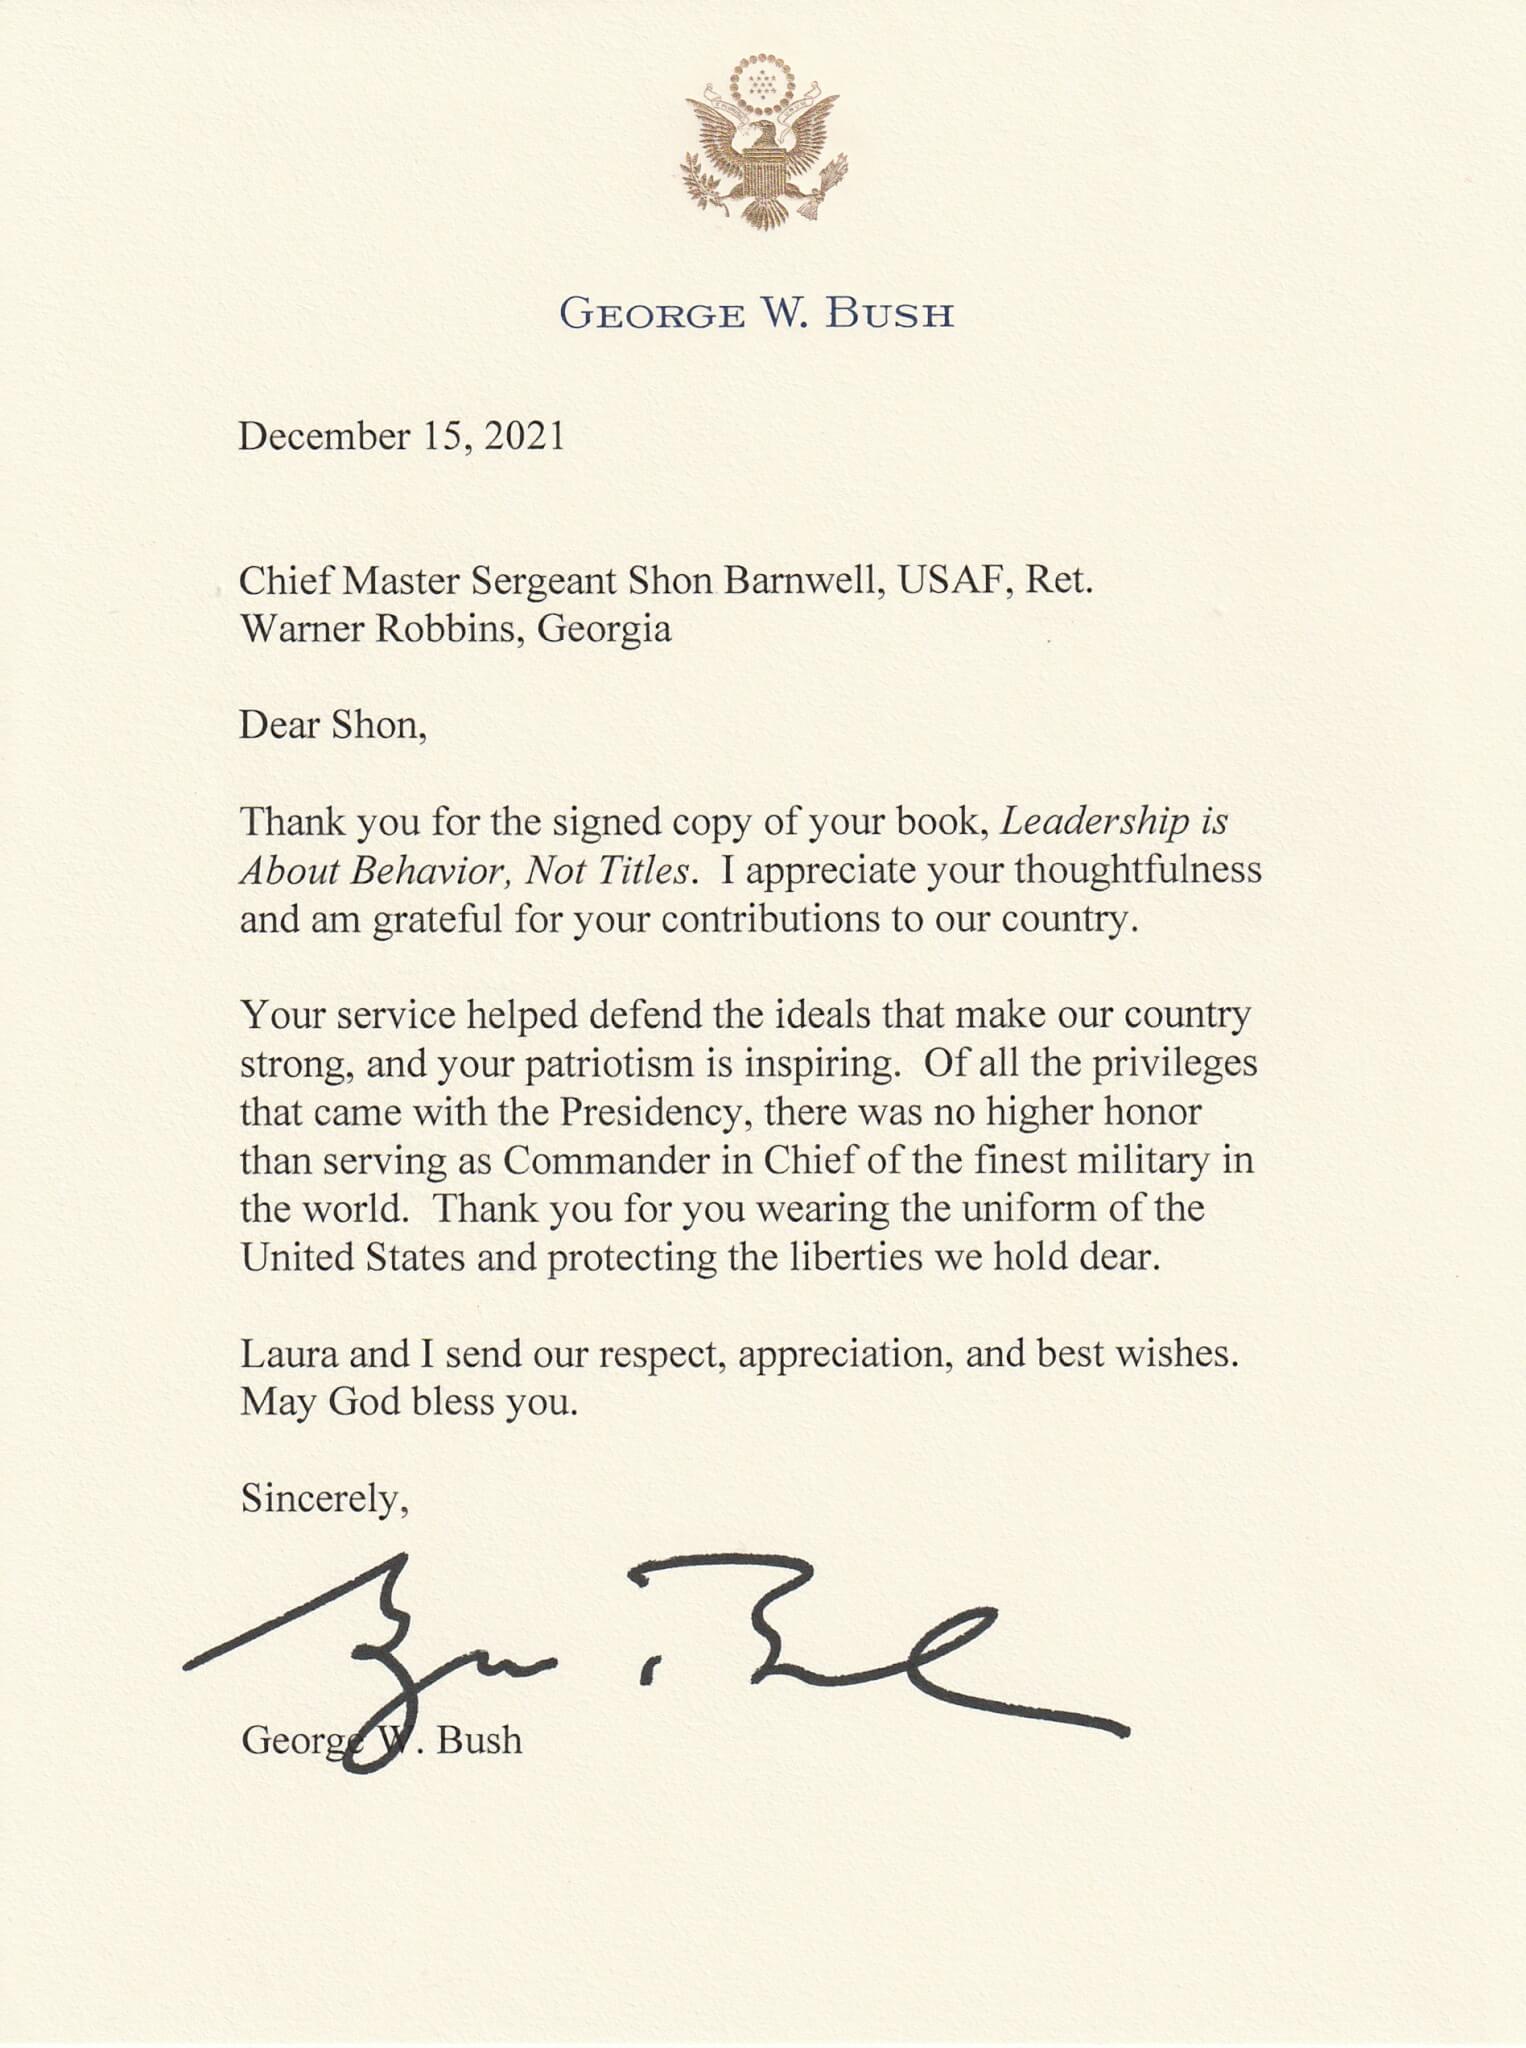 GEORGE W. BUSH
December 15, 2021
Chief Master Sergeant Shon Barnwell, USAF, Ret.
Warner Robbins, Georgia
Dear Shon,
Thank you for the signed copy of your book, Leadership is
About Behavior, Not Titles. I appreciate your thoughtfulness
and am grateful for your contributions to our country.
Your service helped defend the ideals that make our country
strong, and your patriotism is inspiring. Of all the privileges
that came with the Presidency, there was no higher honor
than serving as Commander in Chief of the finest military in
the world. Thank you for you wearing the uniform of the
United States and protecting the liberties we hold dear.
Laura and I send our respect, appreciation, and best wishes.
May God bless you.
Sincerely,
George W. Bush